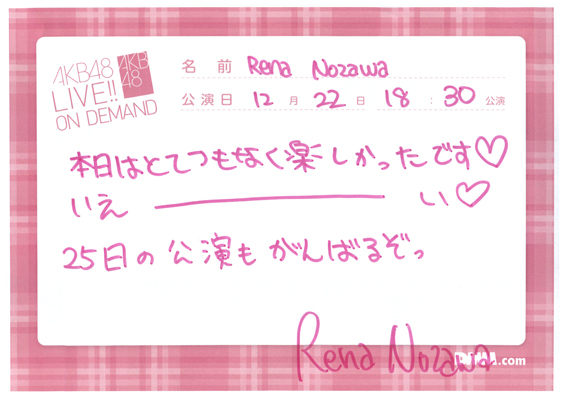 AKB48
LIVE!!
ON DEMAND
AKB
48
名前 Rena Nozawa
公演日 12月22日 18:30公演
本日はとてつもなく楽しかったです♡
いえ ――― い♡
25日の公演もがんばるぞっ
Rena Nozawa
DMM.com